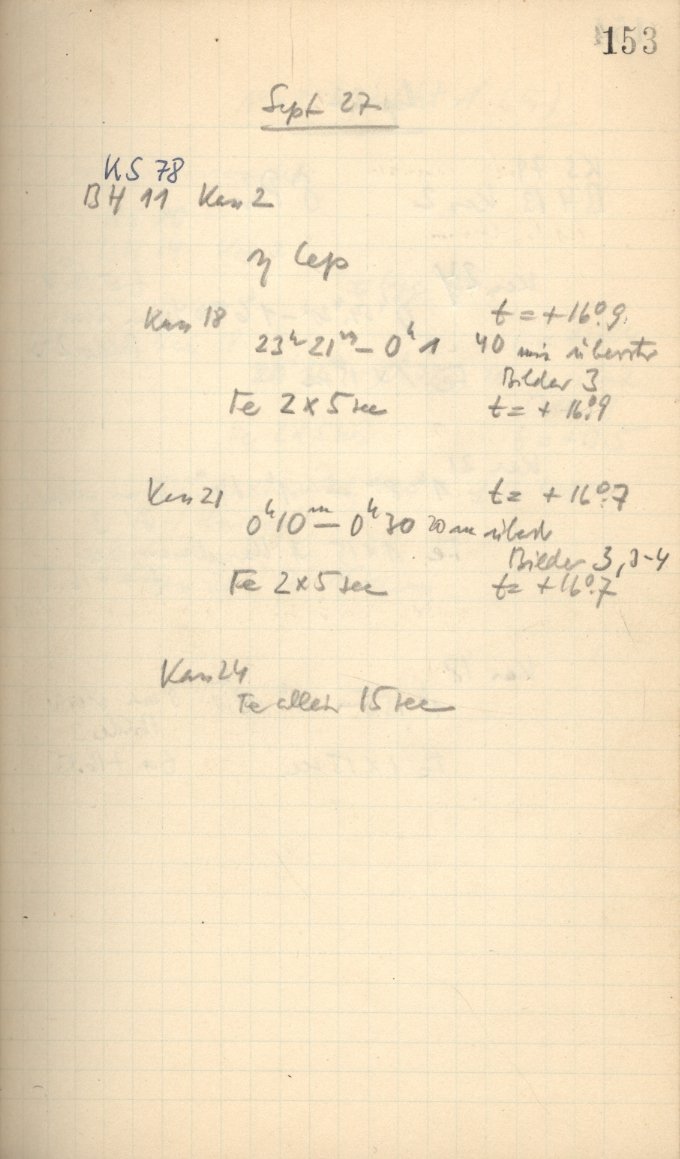 153
Sept 27
KS 78
BH 11 Kass 2
η Cep
Kass 18 t = +16°.9
23ʰ 21ᵐ – 0ʰ 1 40 min überstr
Bilder 3
Fe 2 x 5 sec t = +16°.9
Kass 21 t = +16°.7
0ʰ10ᵐ – 0ʰ30 20 m
Bilder 3, 3-4
Fe 2 x 5 sec t = +16°.7
Kass 24
Fe allein 15 sec